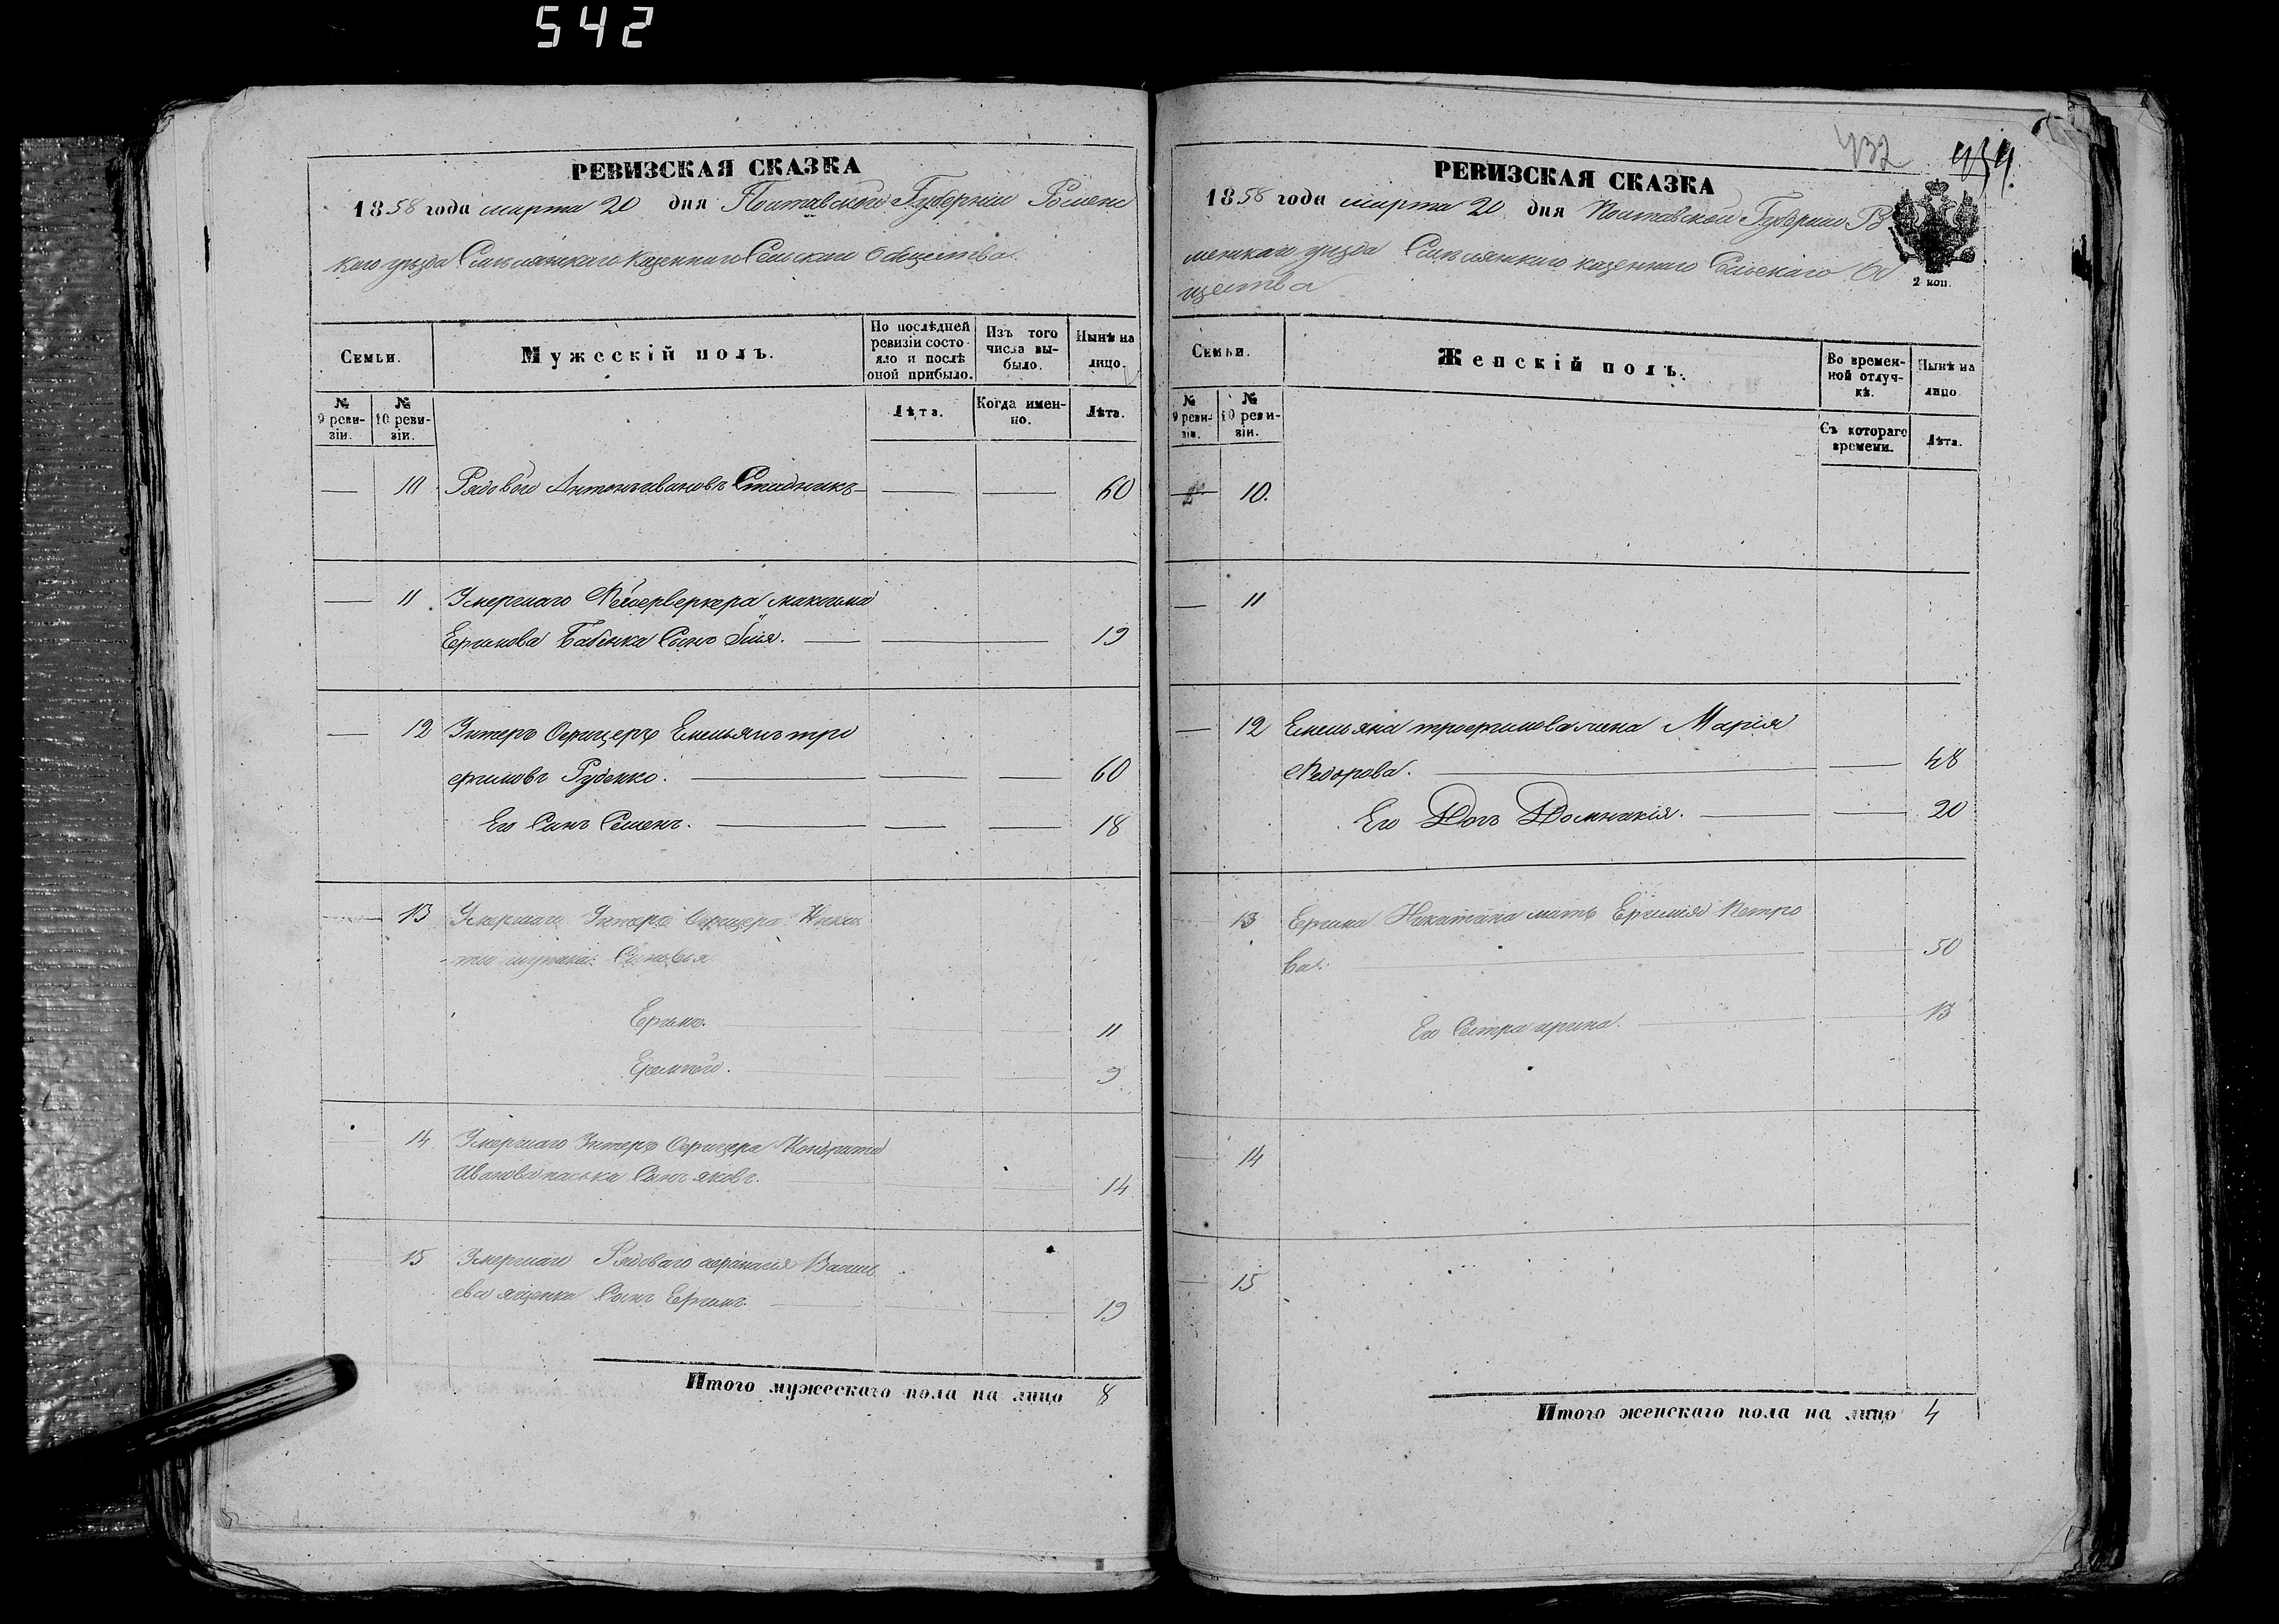 542
РЕВИЗСКАЯ СКАЗКА
1858 года марта 20 дня Полтавской Губерніи Роменс
каго уѣзда казеннаго Сельскаго Общества.
Семьи.
Мужескій полъ.
По послѣдней ревизіи состояло и послѣ оной прибыло.
Изъ того числа выбыло.
Нынѣ на лицо.
№ 9 ревизіи.
№ 10 ревизіи.
Лѣта.
Когда именно.
Лѣта.
— 10 Рядовой Антонъ Ивановъ Стадникъ — — — 60
— 11 Умершаго Фейерверкера Максима
Ефимова Бабенка Сынъ — — 19
— 12 Унтеръ Офицеръ Емельянъ тро
фимовъ Руденко. — — — 60
Его Сынъ Семенъ. — — — 18
— 13 Умершаго Унтеръ Офицера Ники
ты Сыновья
Ефимъ. — — 11
Еремѣй. — — 9
14 Умершаго Унтеръ Офицера Кондрата
Иванова Сынъ яковъ. — — 14
15 Умершаго Рядоваго афанасія Василь
ева яценка Сынъ Ефимъ. — — 19
Итого мужескаго пола на лицо 8
432 434
РЕВИЗСКАЯ СКАЗКА
1858 года марта 20 дня Полтавской Губерніи Ро
менскаго уѣзда казеннаго Сельскаго Об
щества
2 коп.
Семьи.
Женскій полъ.
Во временной отлучкѣ.
Нынѣ на лицо.
№ 9 ревизіи.
№ 10 ревизіи.
Съ котораго времени.
Лѣта.
— 10.
— 11
— 12 Емельяна трофимова жена Марія
Федорова. — — 48
Его Доч Домникія. — — 20
13 Ефима Никитина мать Ефимія Петро
ва. — — 50
Его Сестра ирина. — — 13
14
15
Итого женскаго пола на лицо 4